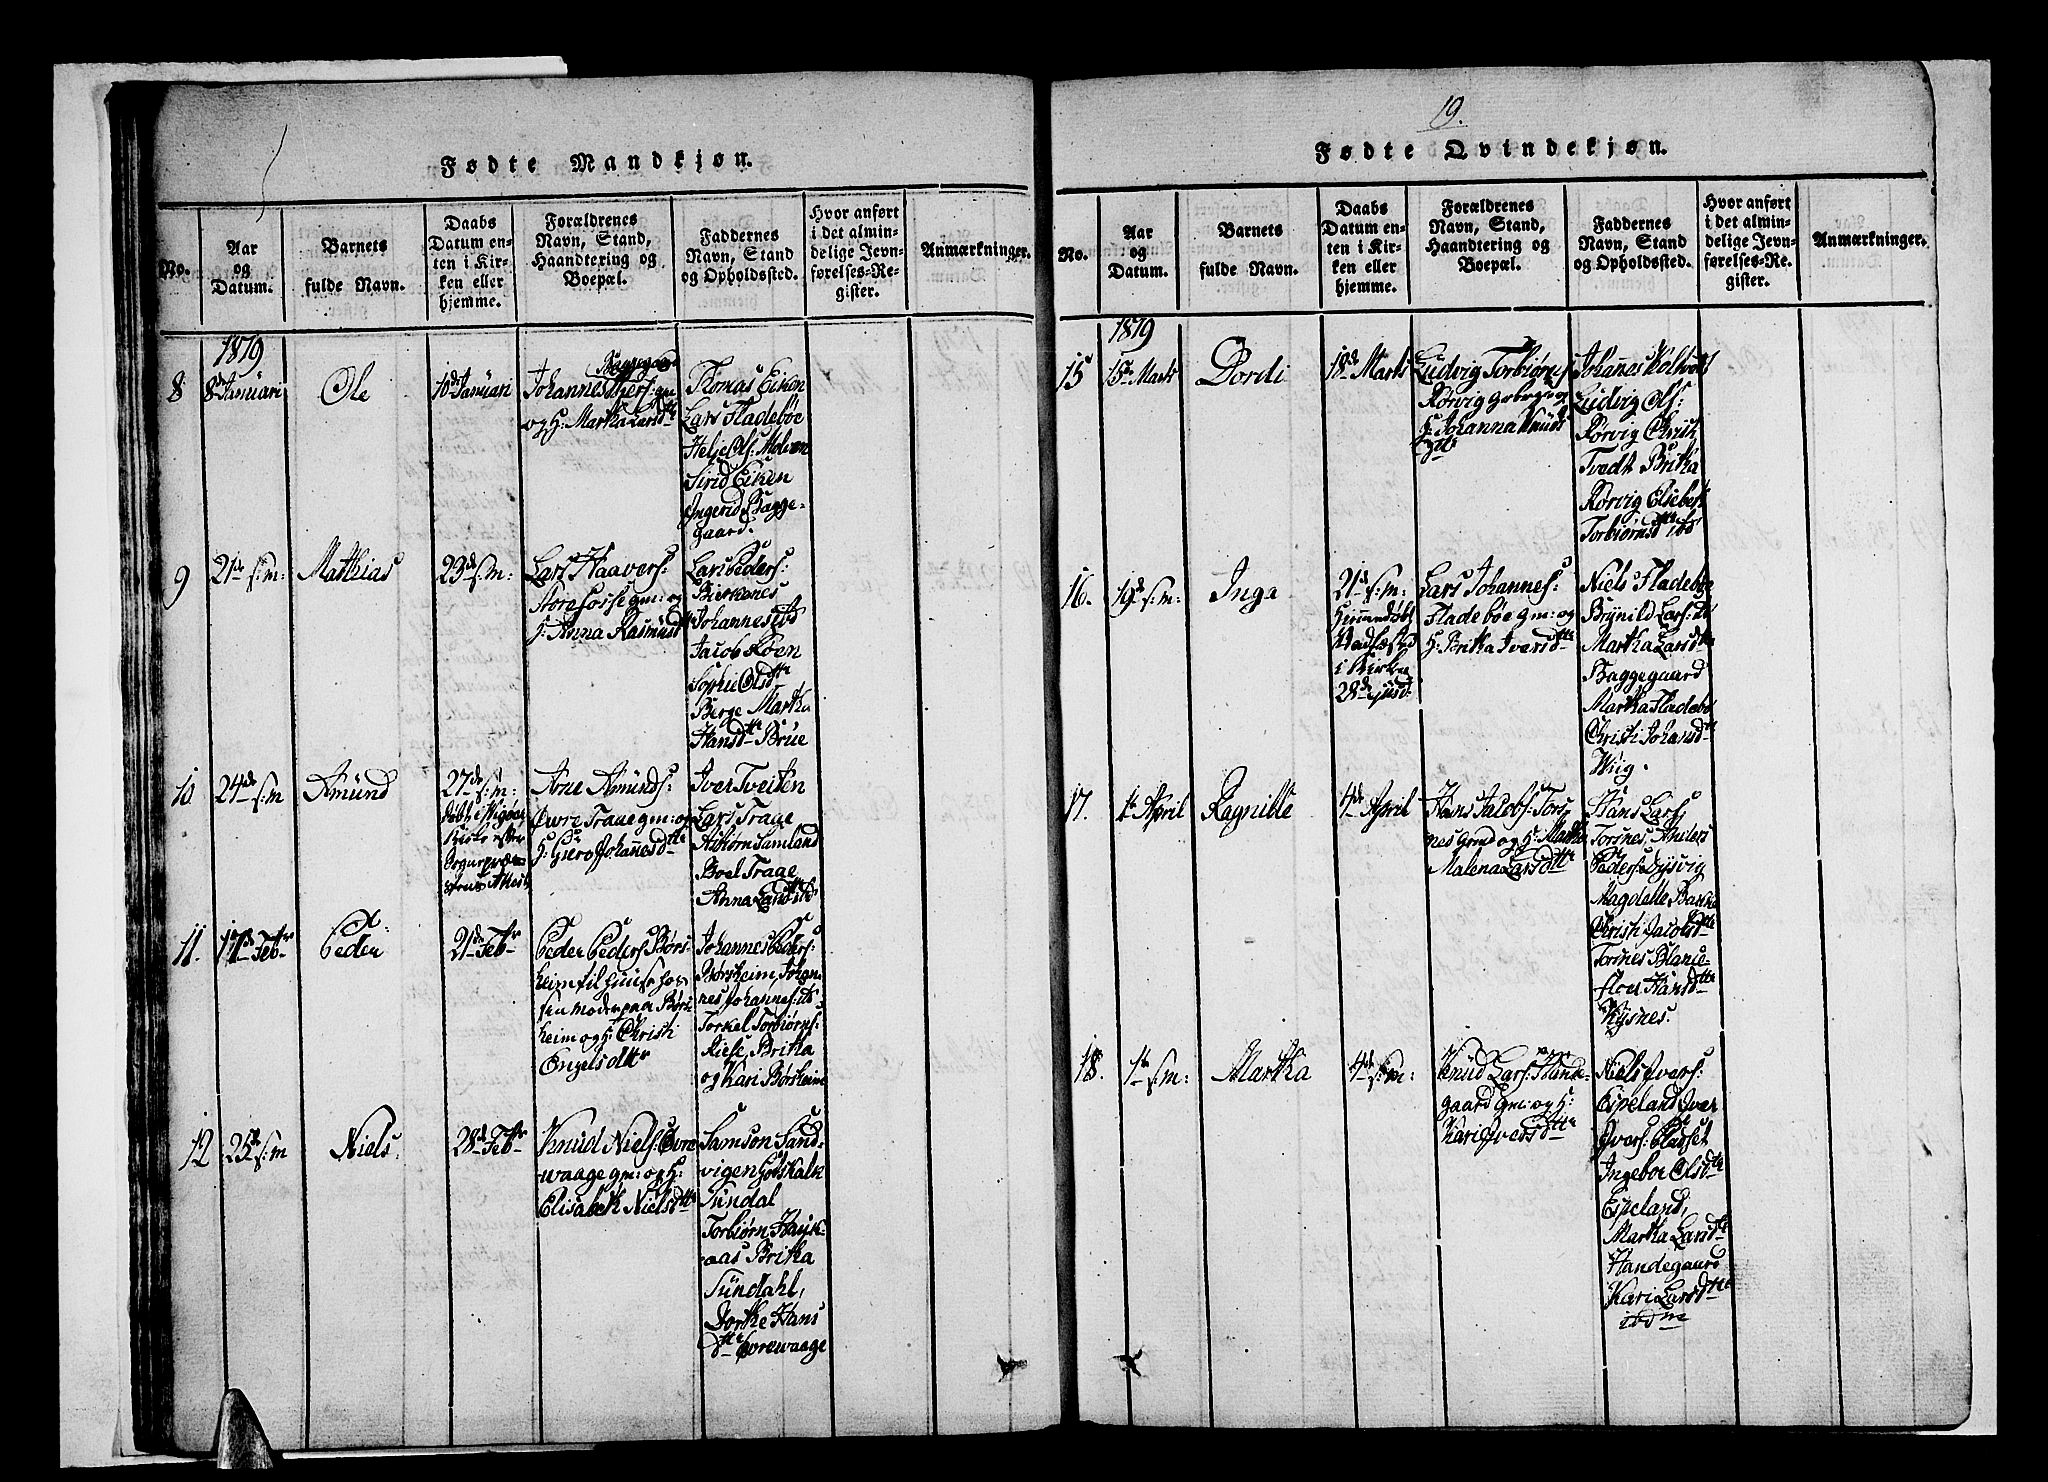 Fødte Mandkjøn.
No.
Aar
og
Datum.
Barnets
fulde Navn.
Daabs
Datum en-
ten i Kir-
ken eller
hjemme.
Forældrenes
Navn, Stand,
Haandtering og
Boepæl.
Faddernes
Navn, Stand
og Opholdssted.
Hvor anført
i det almin-
delige Jevn-
førelses-Re-
gister.
Anmærkninger.
1819
8
8de Januari
Ole
10de Januari
Baggegaard
Johannes gm
og H: Martha Larsdtr
Thomas Eiken
Lars Fladebøe
Helje Ols: Molven
Sirid Eiken
Ingerid Bagge-
gaard.
9
21de s:m:
Mathias
23de s:m:
Lars Haavers:
Storefosse gm: og
H: Anna Rasmusd
Lars Peders:
Birkenes
Johannes ibd
Jacob Røen
Sophi Olsdtr
Berge Martha
Hansdtr Brue
10
24de s:m
Amund
27de s:m:
døbt i Vigøens
Kirke efter
Sognepræs-
tens Attest
Arne Amunds:
Øvre Traae gm: og
H: Giero Johannesdtr
Iver Tveiten
Lars Traae
Asbiørn Samland
Boel Traae
Anna Larsdtr ibd
11.
17de Febr
Peder
21de Febr
Peder Peders: Børs-
heim til huuse hos
sin moder paa Børs
heim og H: Christi
Engelsdtr
Johannes Peders:
Børsheim, Johan
nes Johannes: ibd
Torkel Torbiørns:
Riise, Britha
og Kari Børsheim
12
25de s:m
Niels.
28de Febr
Knud Niels: Øvre
waage gm: og H:
Elisabeth Nielsdtr
Samson Sand-
vigen Godskalk
Sundal
Torbiørn Hauk-
aas Britha
Sundahl,
Dorthe Hans
dtr Øvrewaage
19.
Fødte Qvindekjøn.
No.
Aar
og
Datum.
Barnets
fulde Navn.
Daabs
Datum en-
ten i Kir-
ken eller
hjemme.
Forældrenes
Navn, Stand,
Haandtering og
Boepæl.
Faddernes
Navn, Stand
og Opholdssted.
Hvor anført
i det almin-
delige Jevn-
førelses-Re-
gister.
Anmærkninger.
1819
15
15de Marts
Dordi
19de Marts
Ludvig Torbiørns
Rørvig og
H: Johanna Knuds
dtr
Johannes Kolltvedt
Ludvig Ols:
Rørvig Christi
Tvedt Britha
Rørvig Elsebeth
Torbiørnsdtr ibd
16.
19de s:m:
Inga
21de s:m:
Hiemmedøbt
Stadfæsted
i Kirken
28de ejusd:
Lars Johannes:
Fladebøe gm: og
H: Britha Iversdtr
Niels Fladebøe
Brynild Lars: ibd
Martha Larsdtr
Baggegaard
Martha Fladebø
Christi Johansdtr
Wiig.
17.
1te April
Ragnilde
4de April
Hans Jacobs: Tors
nes gmd og H: Martha
Malena Larsdtr
Hans Lars:
Torsnes Anders
Peders: Dysvig
Magdelle Bakke
Christi Jacobsdtr
Torsnes Blanse-
floer Hansdtr
Kysnes.
18.
1te s:m:
Martha
4de s:m:
Knud Lars: Hande-
gaard gm: og H:
Kari Iversdtr
Niels Ivers:
Espeland Iver
Ivers: Pladset
Ingebor Olsdtr
Espeland,
Martha Larsdtr
Handegaard
Kari Larsdtr
ibdm